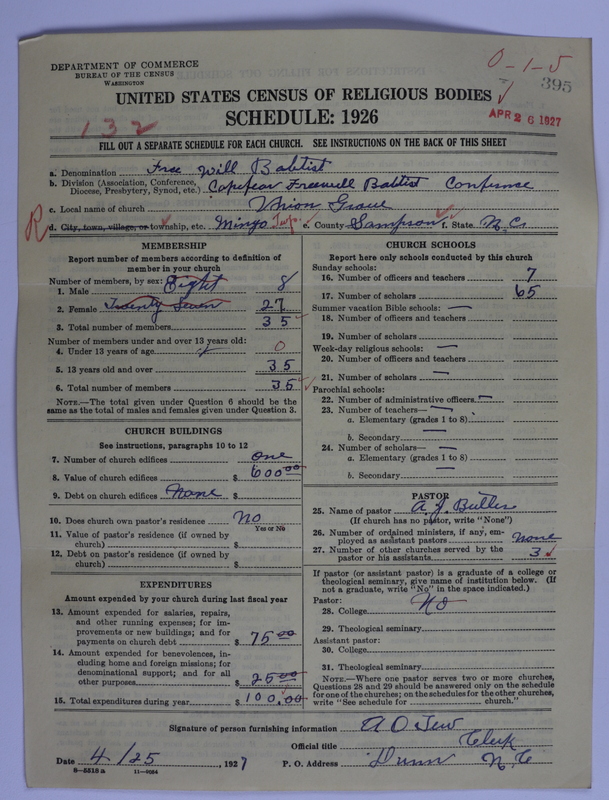 0-1-5
395
DEPARTMENT OF COMMERCE
BUREAU OF THE CENSUS
WASHINGTON
UNITED STATES CENSUS OF RELIGIOUS BODIES
SCHEDULE: 1926
APR 26 1927
132
FILL OUT A SEPARATE SCHEDULE FOR EACH CHURCH. SEE INSTRUCTIONS ON THE BACK OF THIS SHEET
a. Denomination Free Will Babtist
b. Division (Association, Conference, Diocese, Presbytery, Synod, etc.) Capefear Freewill Babtist Confernce
c. Local name of church Union Grove
R d. City, town, village, or township, etc. Mingo Twp. e. County Sampson f. State N.C
MEMBERSHIP
Report number of members according to definition of
member in your church
Number of members, by sex:
1. Male Eight 8
2. Female Twenty Seven 27
3. Total number of members 35
Number of members under and over 13 years old:
4. Under 13 years of age 0
5. 13 years old and over 35
6. Total number of members 35
NOTE.—The total given under Question 6 should be
same as the total of males and females given under Question 3.
CHURCH BUILDINGS
See instructions, paragraphs 10 to 12
7. Number of church edifices one
8. Value of church edifices $ 600 00
9. Debt on church edifices None $
10. Does church own pastor's residence No
Yes or No
11. Value of pastor's residence (if owned by
church) $
12. Debt on pastor's residence (if owned by
church) $
EXPENDITURES
Amount expended by your church during last fiscal year
13. Amount expended for salaries, repairs,
and other running expenses; for im-
provements or new buildings; and for
payments on church debt $ 75 00
14. Amount expended for benevolences, in-
cluding home and foreign missions; for
denominational support; and for all
other purposes $ 25 00
15. Total expenditures during year $ 100.00
CHURCH SCHOOLS
Report here only schools conducted by this church
Sunday schools:
16. Number of officers and teachers 7
17. Number of scholars 65
Summer vacation Bible schools: —
18. Number of officers and teachers
19. Number of scholars
Week-day religious schools: —
20. Number of officers and teachers
21. Number of scholars —
Parochial schools:
22. Number of administrative officers —
23. Number of teachers— —
a. Elementary (grades 1 to 8)
b. Secondary —
24. Number of scholars— —
a. Elementary (grades 1 to 8)
b. Secondary —
PASTOR
25. Name of pastor A. J. Butler
(If church has no pastor, write "None")
26. Number of ordained ministers, if any, em-
ployed as assistant pastors None
27. Number of other churches served by the
pastor or his assistants 3
If pastor (or assistant pastor) is a graduate of a college or
theological seminary, give name of institution below. (If
not a graduate, write "No" in the space indicated.)
Pastor: No
28. College
29. Theological seminary
Assistant pastor:
30. College
31. Theological seminary
NOTE.—Where one pastor serves two or more churches,
Questions 28 and 29 should be answered only on the schedule
for one of the churches; on the schedules for the other churches,
write "See schedule for church."
Signature of person furnishing information A O Tew
Official title Clerk
Date 4/25, 1927 P. O. Address Dunn N. C
8-5518 a 11-9084